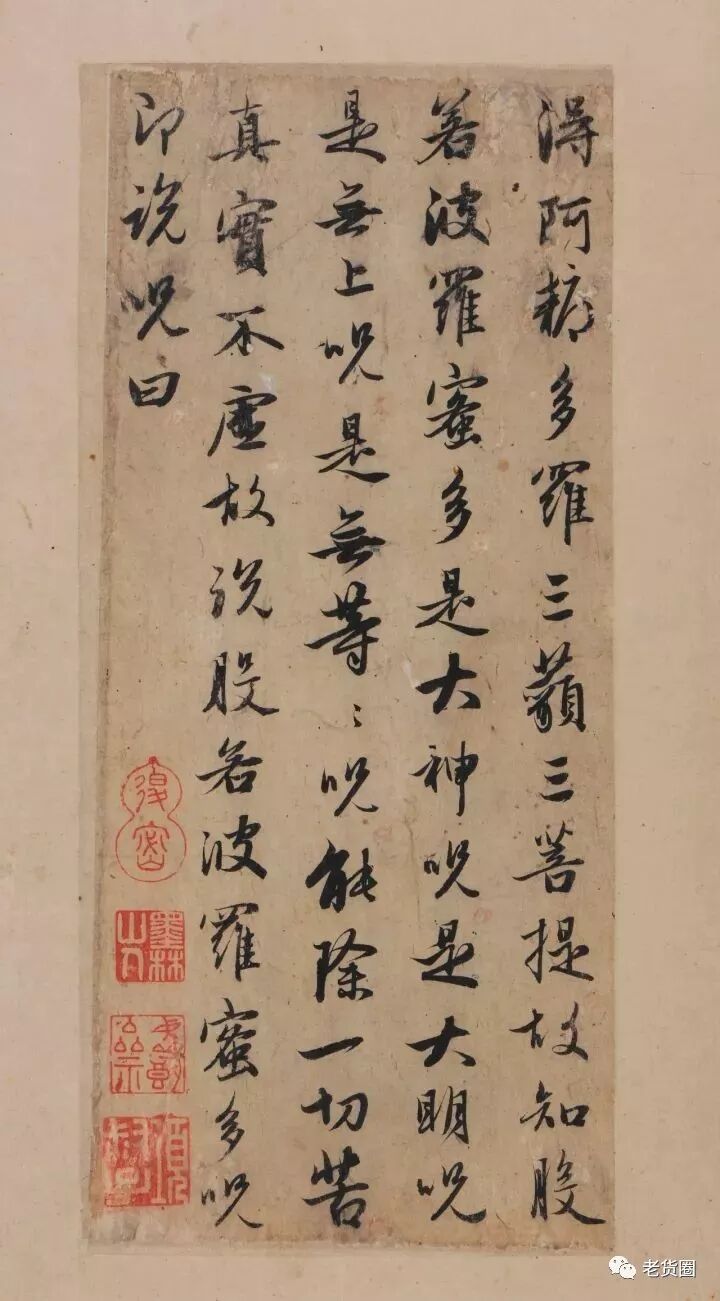 得阿耨多羅三藐三菩提故知般
若波羅蜜多是大神呪是大明呪
是無上呪是無等〻呪能除一切苦
真實不虛故說般若波羅蜜多呪
即說呪曰
墨林
山人
老货圈